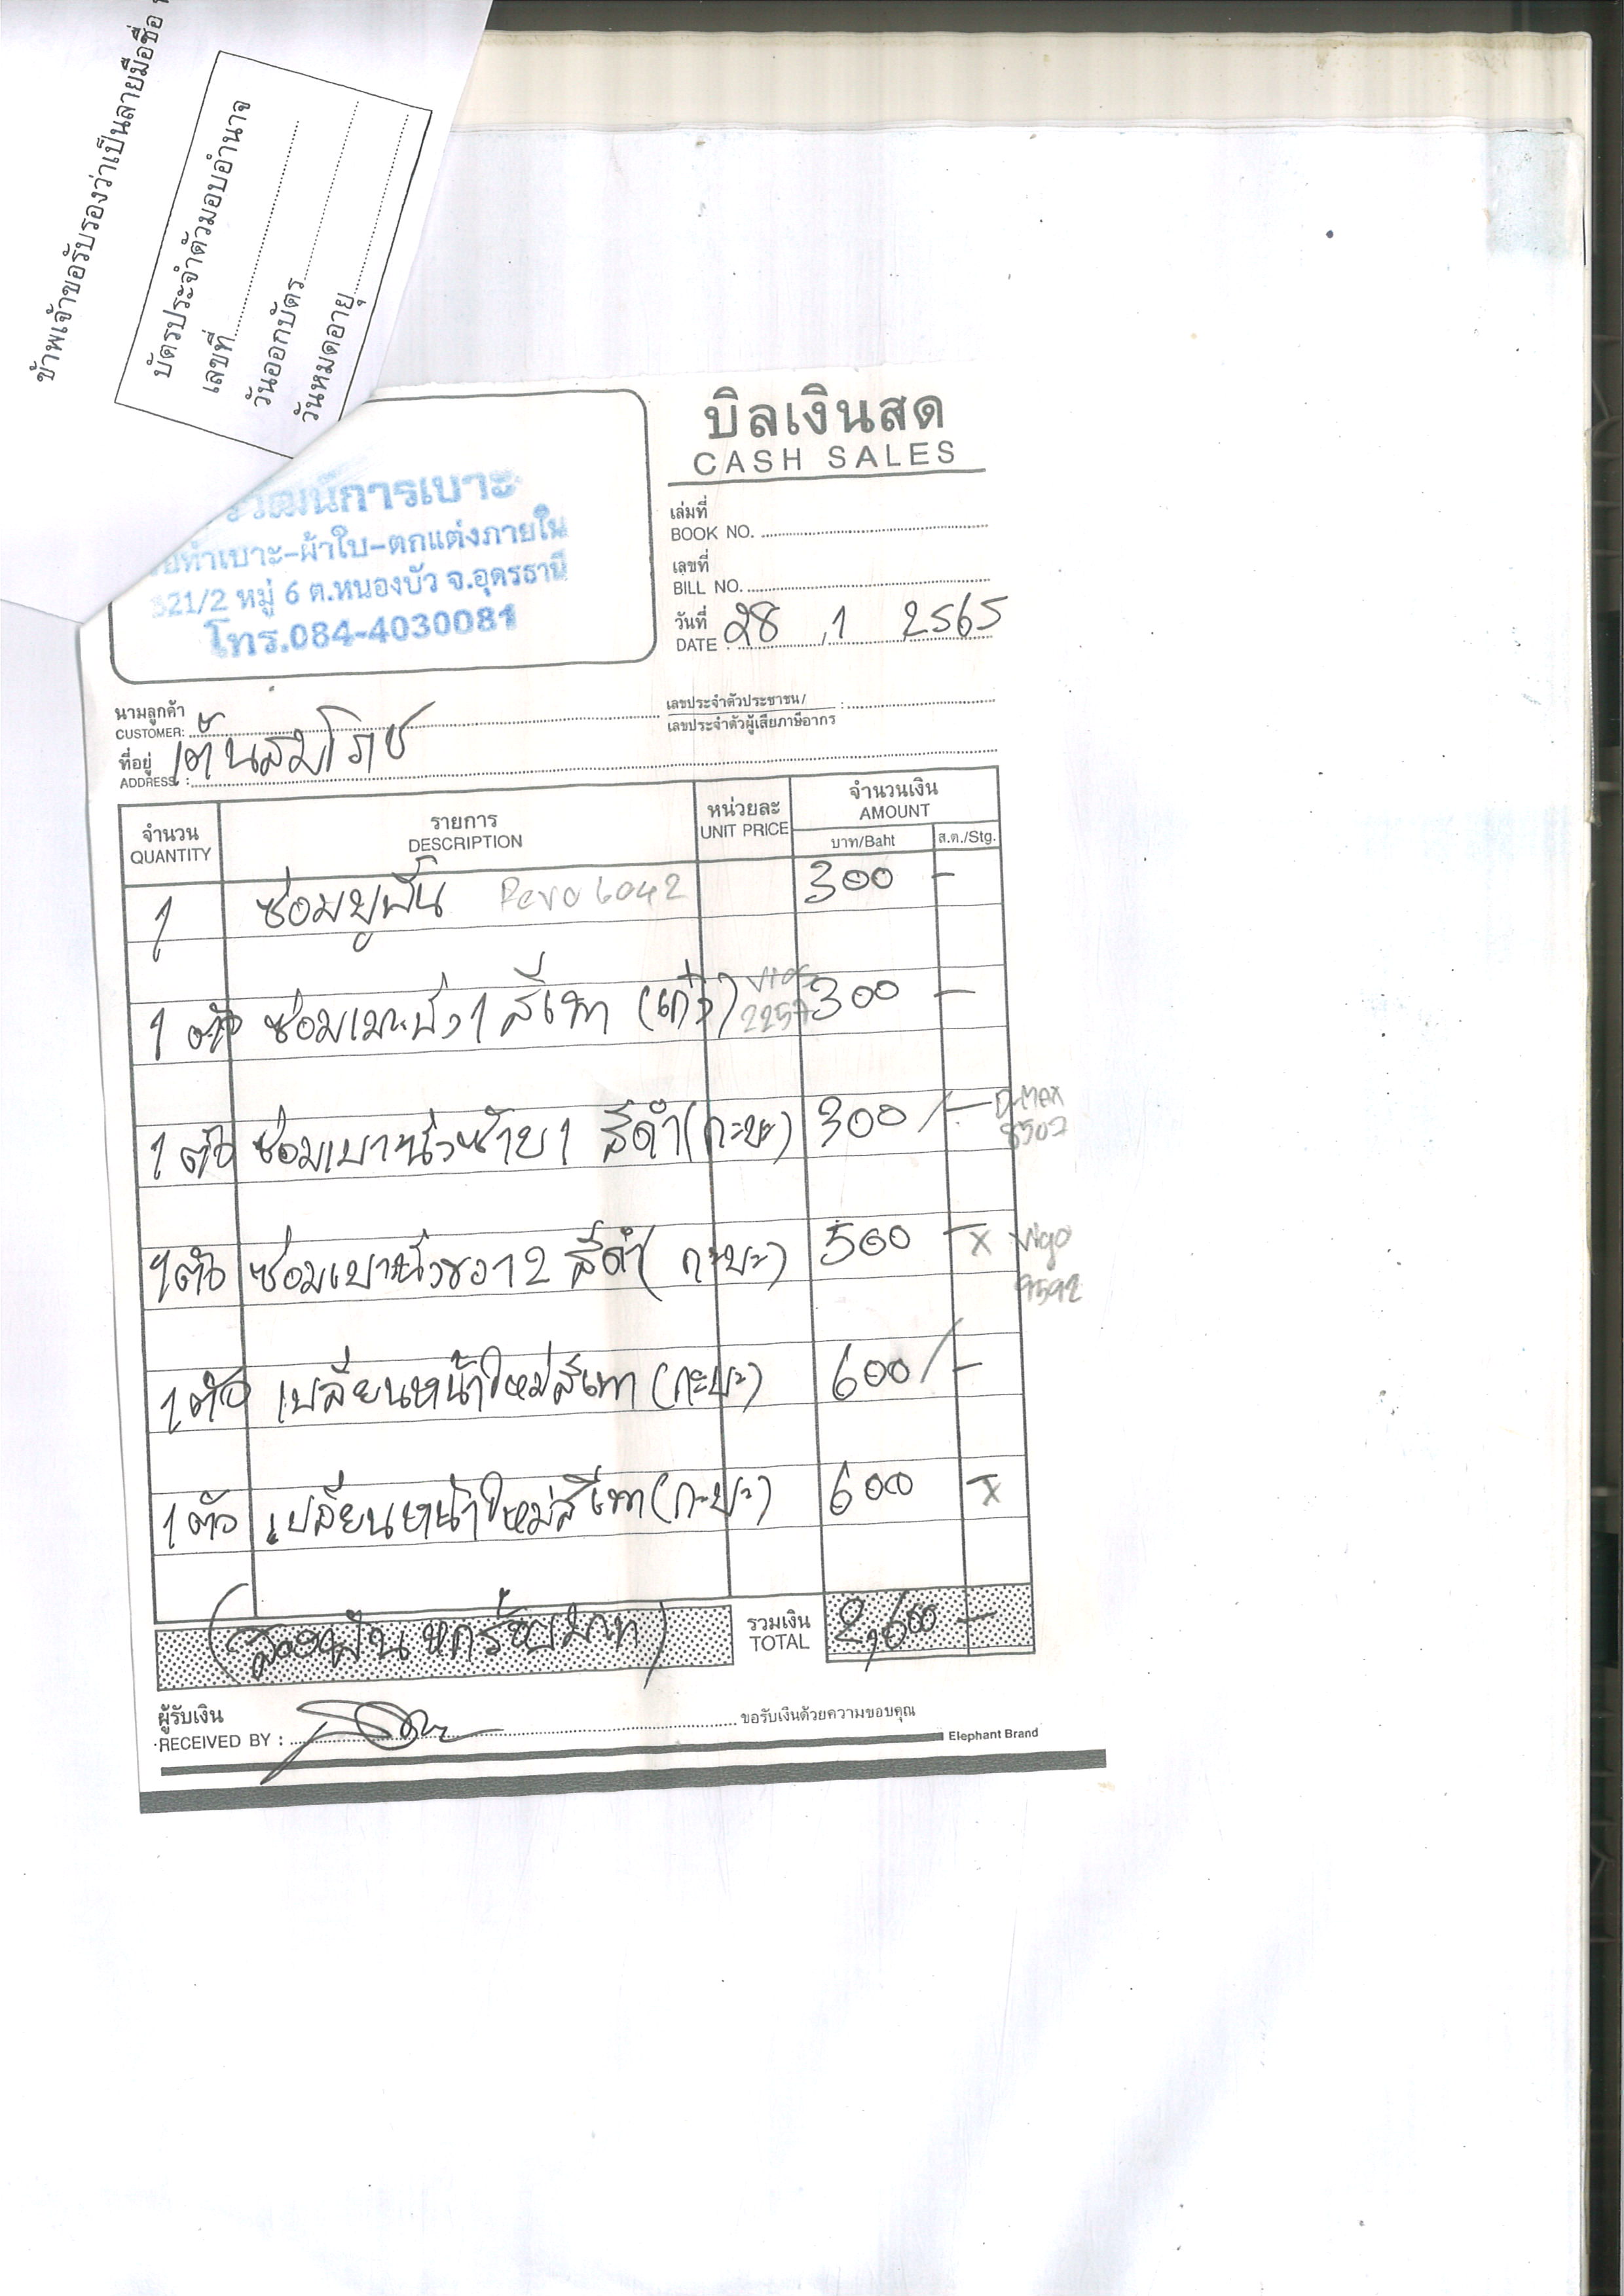 ข้าพเจ้าขอรับรองว่าเป็นลายมือชื่อ
บัตรประจำตัวมอบอำนาจ
เลขที่
วันออกบัตร
วันหมดอายุ
บิลเงินสด
CASH SALES
วัฒน์การเบาะ
ทำเบาะ-ผ้าใบ-ตกแต่งภายใน
321/2 หมู่ 6 ต.หนองบัว จ.อุดรธานี
โทร.084-4030081
เล่มที่
BOOK NO.
เลขที่
BILL NO.
วันที่
DATE : 28 / 1 2565
นามลูกค้า
CUSTOMER:
เลขประจำตัวประชาชน/
เลขประจำตัวผู้เสียภาษีอากร :
ที่อยู่
ADDRESS :
จำนวน รายการ หน่วยละ จำนวนเงิน
QUANTITY DESCRIPTION UNIT PRICE AMOUNT
บาท/Baht ส.ต./Stg.
1 ซ่อมปูพื้น Revo 6042 300 -
1 ตัว ซ่อมเบาะนั่ง 1 สีเทา (เก๋ง) 2257 300 -
1 ตัว ซ่อมเบาะนั่งซ้าย 1 สีดำ (กะบะ) 300 / - D-MAX
1 ตัว ซ่อมเบาะนั่งขวา 2 สีดำ (กะบะ) 500 - x Vigo
9592
1 ตัว เปลี่ยนหน้าใหม่สีเทา (กะบะ) 600 / -
1 ตัว เปลี่ยนหน้าใหม่สีเทา (กะบะ) 600 - x
(สองพันหกร้อยบาท) รวมเงิน 2,600 -
TOTAL
ผู้รับเงิน
RECEIVED BY : ขอรับเงินด้วยความขอบคุณ
Elephant Brand